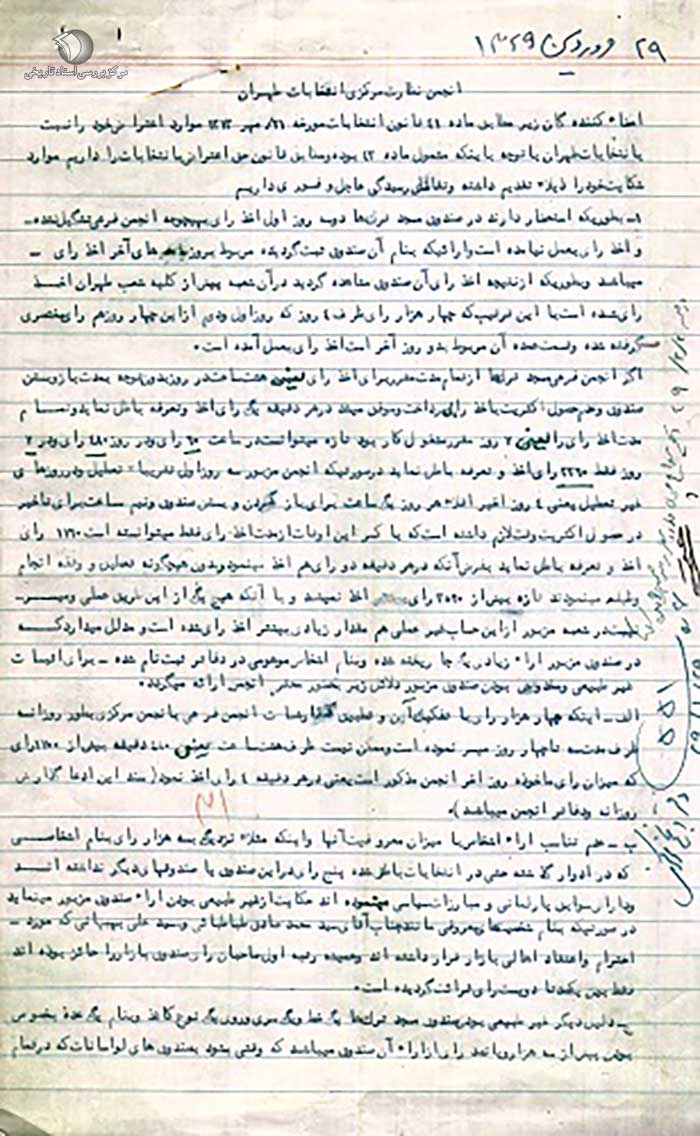 مرکز بررسی اسناد تاریخی
۲۹ فروردین ۱۳۲۹
انجمن نظارت مرکزی انتخابات طهران
امضاء کننده گان زیر مطابق ماده ۴۱ قانون انتخابات مورخه ۲۱/ مهر ۱۳۱۳ موارد اعتراض خود را نسبت
بانتخابات طهران با توجه باینکه مشمول ماده ۴۲ بوده و مطابق قانون حق اعتراض بانتخابات را داریم موارد
شکایت خود را ذیلاً تقدیم داشته و تقاضای رسیدگی عاجل و فوری داریم
۱ـ بطوریکه استحضار دارند در صندوق مسجد ترک‌ها دو سه روز اول اخذ رای بهیچوجه انجمن فرعی تشکیل نشده ـ
و اخذ رای بعمل نیامده است و ارائیکه بنام آن صندوق ثبت گردیده مربوط بروزهای آخر اخذ رای ـ
میباشد و بطوریکه از نتیجه اخذ رای آن صندوق مشاهده گردید در آن شعبه بیش از کلیه شعب طهران اخذ
رای شده است با این ترتیب که چهار هزار رای ظرف ۴ روز که روز اول و دوم از این چهار روز هم رای مختصری
گرفته شده و قسمت عمده آن مربوط بدو روز آخر است اخذ رای بعمل آمده است ۰
اگر انجمن فرعی مسجد ترک‌ها از تمام مدت مقرر برای اخذ رای یعنی هشت ساعت در روز بدون توجه بمدت باز و بستن
صندوق و عدم حصول اکثریت باخذ رای پرداخت و موفق میشد در هر دقیقه یک رای اخذ و تعرفه باطل نماید و تمام
مدت اخذ رای را یعنی ۷ روز مقرر مشغول کار بود تازه میتوانست در ساعت ۶۰ رای و در روز ۴۸۰ رای و در ۷
روز فقط ۳۳۶۰ رای اخذ و تعرفه باطل نماید در صورتیکه انجمن مزبور سه روز اول تقریباً تعطیل و در روزهای
غیر تعطیل یعنی ۴ روز اخیر اقلاً هر روز یک ساعت برای باز کردن و بستن صندوق و نیم ساعت برای تاخیر
در حصول اکثریت وقت لازم داشته است که با کسر این اوقات از مدت اخذ رای فقط میتوانسته است رای
اخذ و تعرفه باطل نماید بفرض آنکه در هر دقیقه دو رای هم اخذ مینمود و بدون هیچگونه تعطیل و وقفه انجام
وظیفه مینمودند تازه بیش از رای اخذ نمیشد و با آنکه هیچ یک از این طریق عملی و میسر ـ
نیست در شعبه مزبور از این حساب غیر عملی هم مقدار زیادی بیشتر اخذ رای شده است و مدلل میدارد که
در صندوق مزبور اراء زیادی یکجا ریخته شده و بنام اشخاص موهومی در دفاتر ثبت نام شده ـ برای اثبات
غیر طبیعی و مخدوش بودن صندوق مزبور دلائل زیر بحضور محترم انجمن ارائه میگردد ۰
الف ـ اینکه چهار هزار رای با تفکیک آن و تطبیق گزارشات انجمن فرعی بانجمن مرکزی بطور روزانه
ظرف مدت سه تا چهار روز میسر نموده است و ممکن نیست ظرف هشت ساعت یعنی ۴۸۰ دقیقه بیش از رای
که میزان رای ماخوذه روز آخر انجمن مذکور است یعنی در هر دقیقه ۴ رای اخذ نمود (سند این ادعا گزارش
روزانه و دفاتر انجمن میباشد )۰
ب ـ عدم تناسب اراء اشخاص با میزان معروفیت آنها و اینکه مثلاً نزدیک سه هزار رای بنام اشخاصی
که در ادوار گذشته حتی در انتخابات باطل شده پنج رای در این صندوق یا صندوقهای دیگر نداشته اند
و دارای سوابق پارلمانی و مبارزات سیاسی نبوده اند حکایت از غیر طبیعی بودن اراء صندوق مزبور مینماید
در صورتیکه بنام شخصیتهای معروفی مانند جناب آقای سید محمد صادق طباطبائی و سید علی بهبهانی که مورد ـ
احترام و اعتقاد اهالی بازار قرار داشته اند و همیشه رتبه اول صاحبان رای صندوق بازار را حائز بوده اند
فقط بین یکصد تا دویست رای قرائت گردیده است ۰
ج ـ دلیل دیگر غیر طبیعی بودن صندوق مسجد ترک‌ها یک خط و یک سری و روی یک نوع کاغذ و بنام یک عده بخصوص
بودن بیش از سه هزار و پانصد رای از اراء آن صندوق میباشد که وقتی بشود بصندوق های لواسانات که در تمام